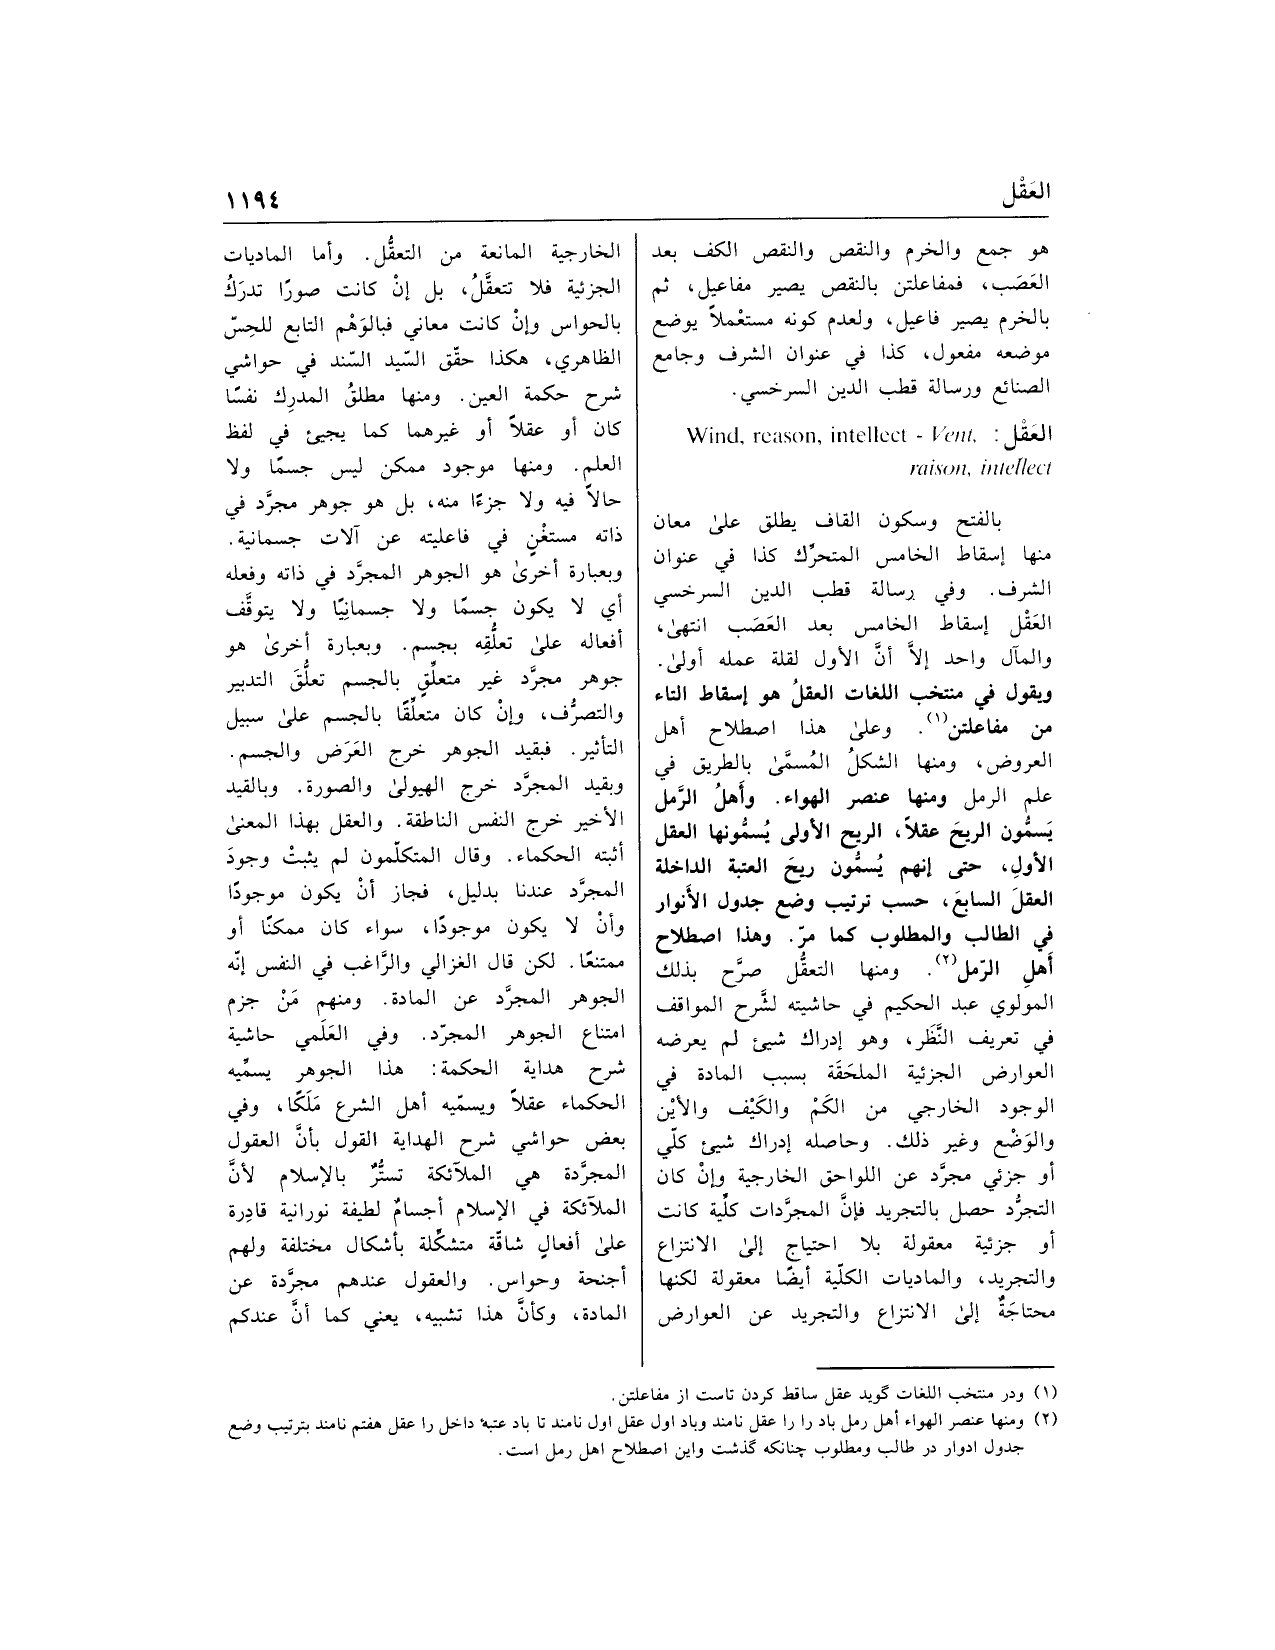 العَقْل
١١٩٤
هو جمع والخرم والنقص والنقص الكف بعد
العَصَب، فمفاعلتن بالنقص يصير مفاعيل، ثم
بالخرم يصير فاعيل، ولعدم كونه مستعْملاً يوضع
موضعه مفعول، كذا في عنوان الشرف وجامع
الصنائع ورسالة قطب الدين السرخسي.
العَقْل: Wind, reason, intellect - Vent,
raison, intellect
بالفتح وسكون القاف يطلق علىٰ معان
منها إسقاط الخامس المتحرِّك كذا في عنوان
الشرف. وفي رسالة قطب الدين السرخسي
العَقْل إسقاط الخامس بعد العَصَب انتهىٰ،
والمآل واحد إلاَّ أنَّ الأول لقلة عمله أولىٰ.
ويقول في منتخب اللغات العقلُ هو إسقاط التاء
من مفاعلتن(١). وعلىٰ هذا اصطلاح أهل
العروض، ومنها الشكلُ المُسمَّىٰ بالطريق في
علم الرمل ومنها عنصر الهواء. وأَهلُ الرَّمل
يَسمُّون الريحَ عقلاً، الريح الأولى يُسمُّونها العقل
الأولِ، حتى إنهم يُسمُّون ريحَ العتبة الداخلة
العقلَ السابعَ، حسب ترتيب وضع جدول الأنوار
في الطالب والمطلوب كما مرّ. وهذا اصطلاح
أهلِ الرّمل(٢). ومنها التعقُّل صرَّح بذلك
المولوي عبد الحكيم في حاشيته لشَّرح المواقف
في تعريف النَّظَر، وهو إدراك شيئ لم يعرضه
العوارض الجزئية الملحَقَة بسبب المادة في
الوجود الخارجي من الكَمْ والكَيْف والأيْن
والوَضْع وغير ذلك. وحاصله إدراك شيئ كلّي
أو جزئي مجرَّد عن اللواحق الخارجية وإنْ كان
التجرُّد حصل بالتجريد فإنَّ المجرَّدات كلِّية كانت
أو جزئية معقولة بلا احتياج إلىٰ الانتزاع
والتجريد، والماديات الكلّية أيضًا معقولة لكنها
محتاجَةٌ إلىٰ الانتزاع والتجريد عن العوارض
الخارجية المانعة من التعقُّل. وأما الماديات
الجزئية فلا تتعقَّلُ، بل إنْ كانت صورًا تدرَكُ
بالحواس وإنْ كانت معاني فبالوَهْم التابع للحِسّ
الظاهري، هكذا حقّق السّيد السّند في حواشي
شرح حكمة العين. ومنها مطلقُ المدرِك نفسًا
كان أو عقلاً أو غيرهما كما يجيئ في لفظ
العلم. ومنها موجود ممكن ليس جسمًا ولا
حالاً فيه ولا جزءًا منه، بل هو جوهر مجرَّد في
ذاته مستغْنٍ في فاعليته عن آلات جسمانية.
وبعبارة أخرىٰ هو الجوهر المجرَّد في ذاته وفعله
أي لا يكون جسمًا ولا جسمانيًا ولا يتوقَّف
أفعاله علىٰ تعلُّقِه بجسم. وبعبارة أخرىٰ هو
جوهر مجرَّد غير متعلِّقٍ بالجسم تعلُّقَ التدبير
والتصرُّف، وإنْ كان متعلِّقًا بالجسم علىٰ سبيل
التأثير. فبقيد الجوهر خرج العَرَض والجسم.
وبقيد المجرَّد خرج الهيولىٰ والصورة. وبالقيد
الأخير خرج النفس الناطقة. والعقل بهذا المعنىٰ
أثبته الحكماء. وقال المتكلّمون لم يثبتْ وجودَ
المجرَّد عندنا بدليل، فجاز أنْ يكون موجودًا
وأنْ لا يكون موجودًا، سواء كان ممكنًا أو
ممتنعًا. لكن قال الغزالي والرَّاغب في النفس إنّه
الجوهر المجرَّد عن المادة. ومنهم مَنْ جزم
امتناع الجوهر المجرّد. وفي العَلَمي حاشية
شرح هداية الحكمة: هذا الجوهر يسمِّيه
الحكماء عقلاً ويسمّيه أهل الشرع مَلَكًا، وفي
بعض حواشي شرح الهداية القول بأنَّ العقول
المجرَّدة هي الملائكة تستُّرٌ بالإسلام لأنَّ
الملائكة في الإسلام أجسامٌ لطيفة نورانية قادِرة
علىٰ أفعالٍ شاقّة متشكِّلة بأشكال مختلفة ولهم
أجنحة وحواس. والعقول عندهم مجرَّدة عن
المادة، وكأنَّ هذا تشبيه، يعني كما أنَّ عندكم
(١) ودر منتخب اللغات گويد عقل ساقط كردن تاست از مفاعلتن.
(٢) ومنها عنصر الهواء أهل رمل باد را را عقل نامند وباد اول عقل اول نامند تا باد عتبهٔ داخل را عقل هفتم نامند بترتيب وضع
جدول ادوار در طالب ومطلوب چنانكه گذشت واين اصطلاح اهل رمل است.